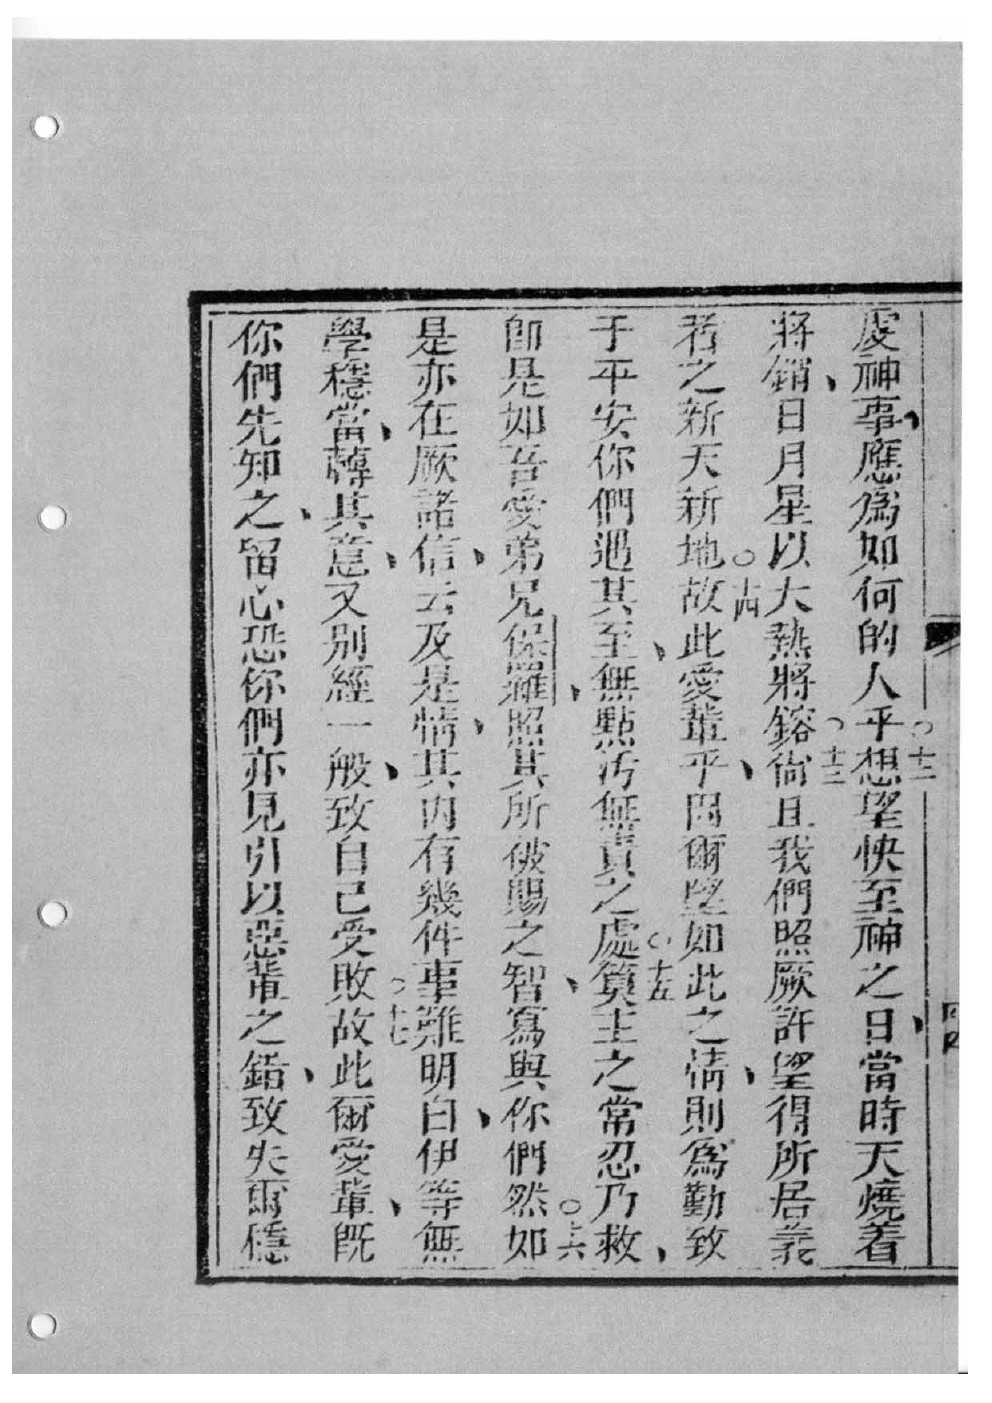 虔神事應為如何的人乎○十二想望快至神之日當時天燒着
將銷日月星以大熱將鎔○十三尙且我們照厥許望得所居義
者之新天新地○十四故此愛輩乎因爾望如此之情則為勤致
于平安你們遇其至無點汚無責之處○十五算主之常忍乃救
卽是如吾愛弟兄保羅照其所被賜之智寫與你們然○十六如
是亦在厥諸信云及是情其內有幾件事難明白伊等無
學穩當轉其意又別經一般致自己受敗○十七故此爾愛輩旣
你們先知之留心恐你們亦見引以惡輩之錯致失爾穩